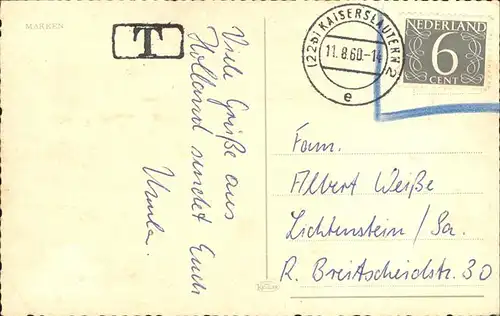 MARKEN
T
Viele Grüße aus
Holland sendet Euch
Ursula.
(22b) KAISERSLAUTERN 2
11. 8. 60.-14
e
NEDERLAND
6
CENT
Fam.
Albert Weiße
Lichtenstein / Sa.
R. Breitscheidstr. 30